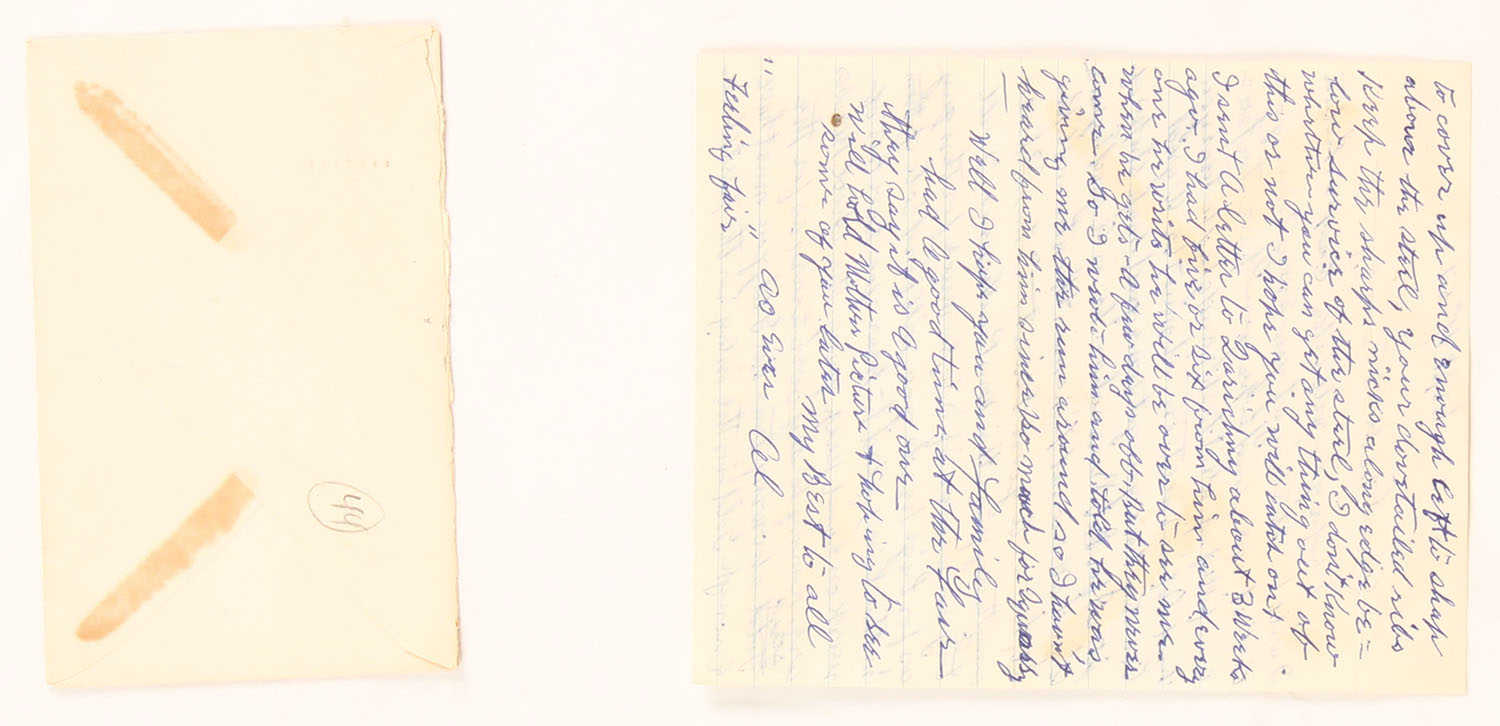 to cover up and enough left to shap
above the steel, your dovetailed ribs
Keep the sharps nicks along edge be-
low survice of the steel, I don't know
whether you can get any thing out of
this or not I hope you will catch on,
I sent A letter to Darishing about 3 Weeks
ago, I had five or six from him and every
one he writs he will be over to see me
when he gets A few days off, but they never
come So I wrote him and told he was
giving me the run around so I havnt
heard from him since so much for
Well I hope you and family
had A good time at the Fair
they say it is A good one
Will hold Mothers picture & hoping to see
some of you later My Best to all
As Ever Al
"Feeling fair"
44